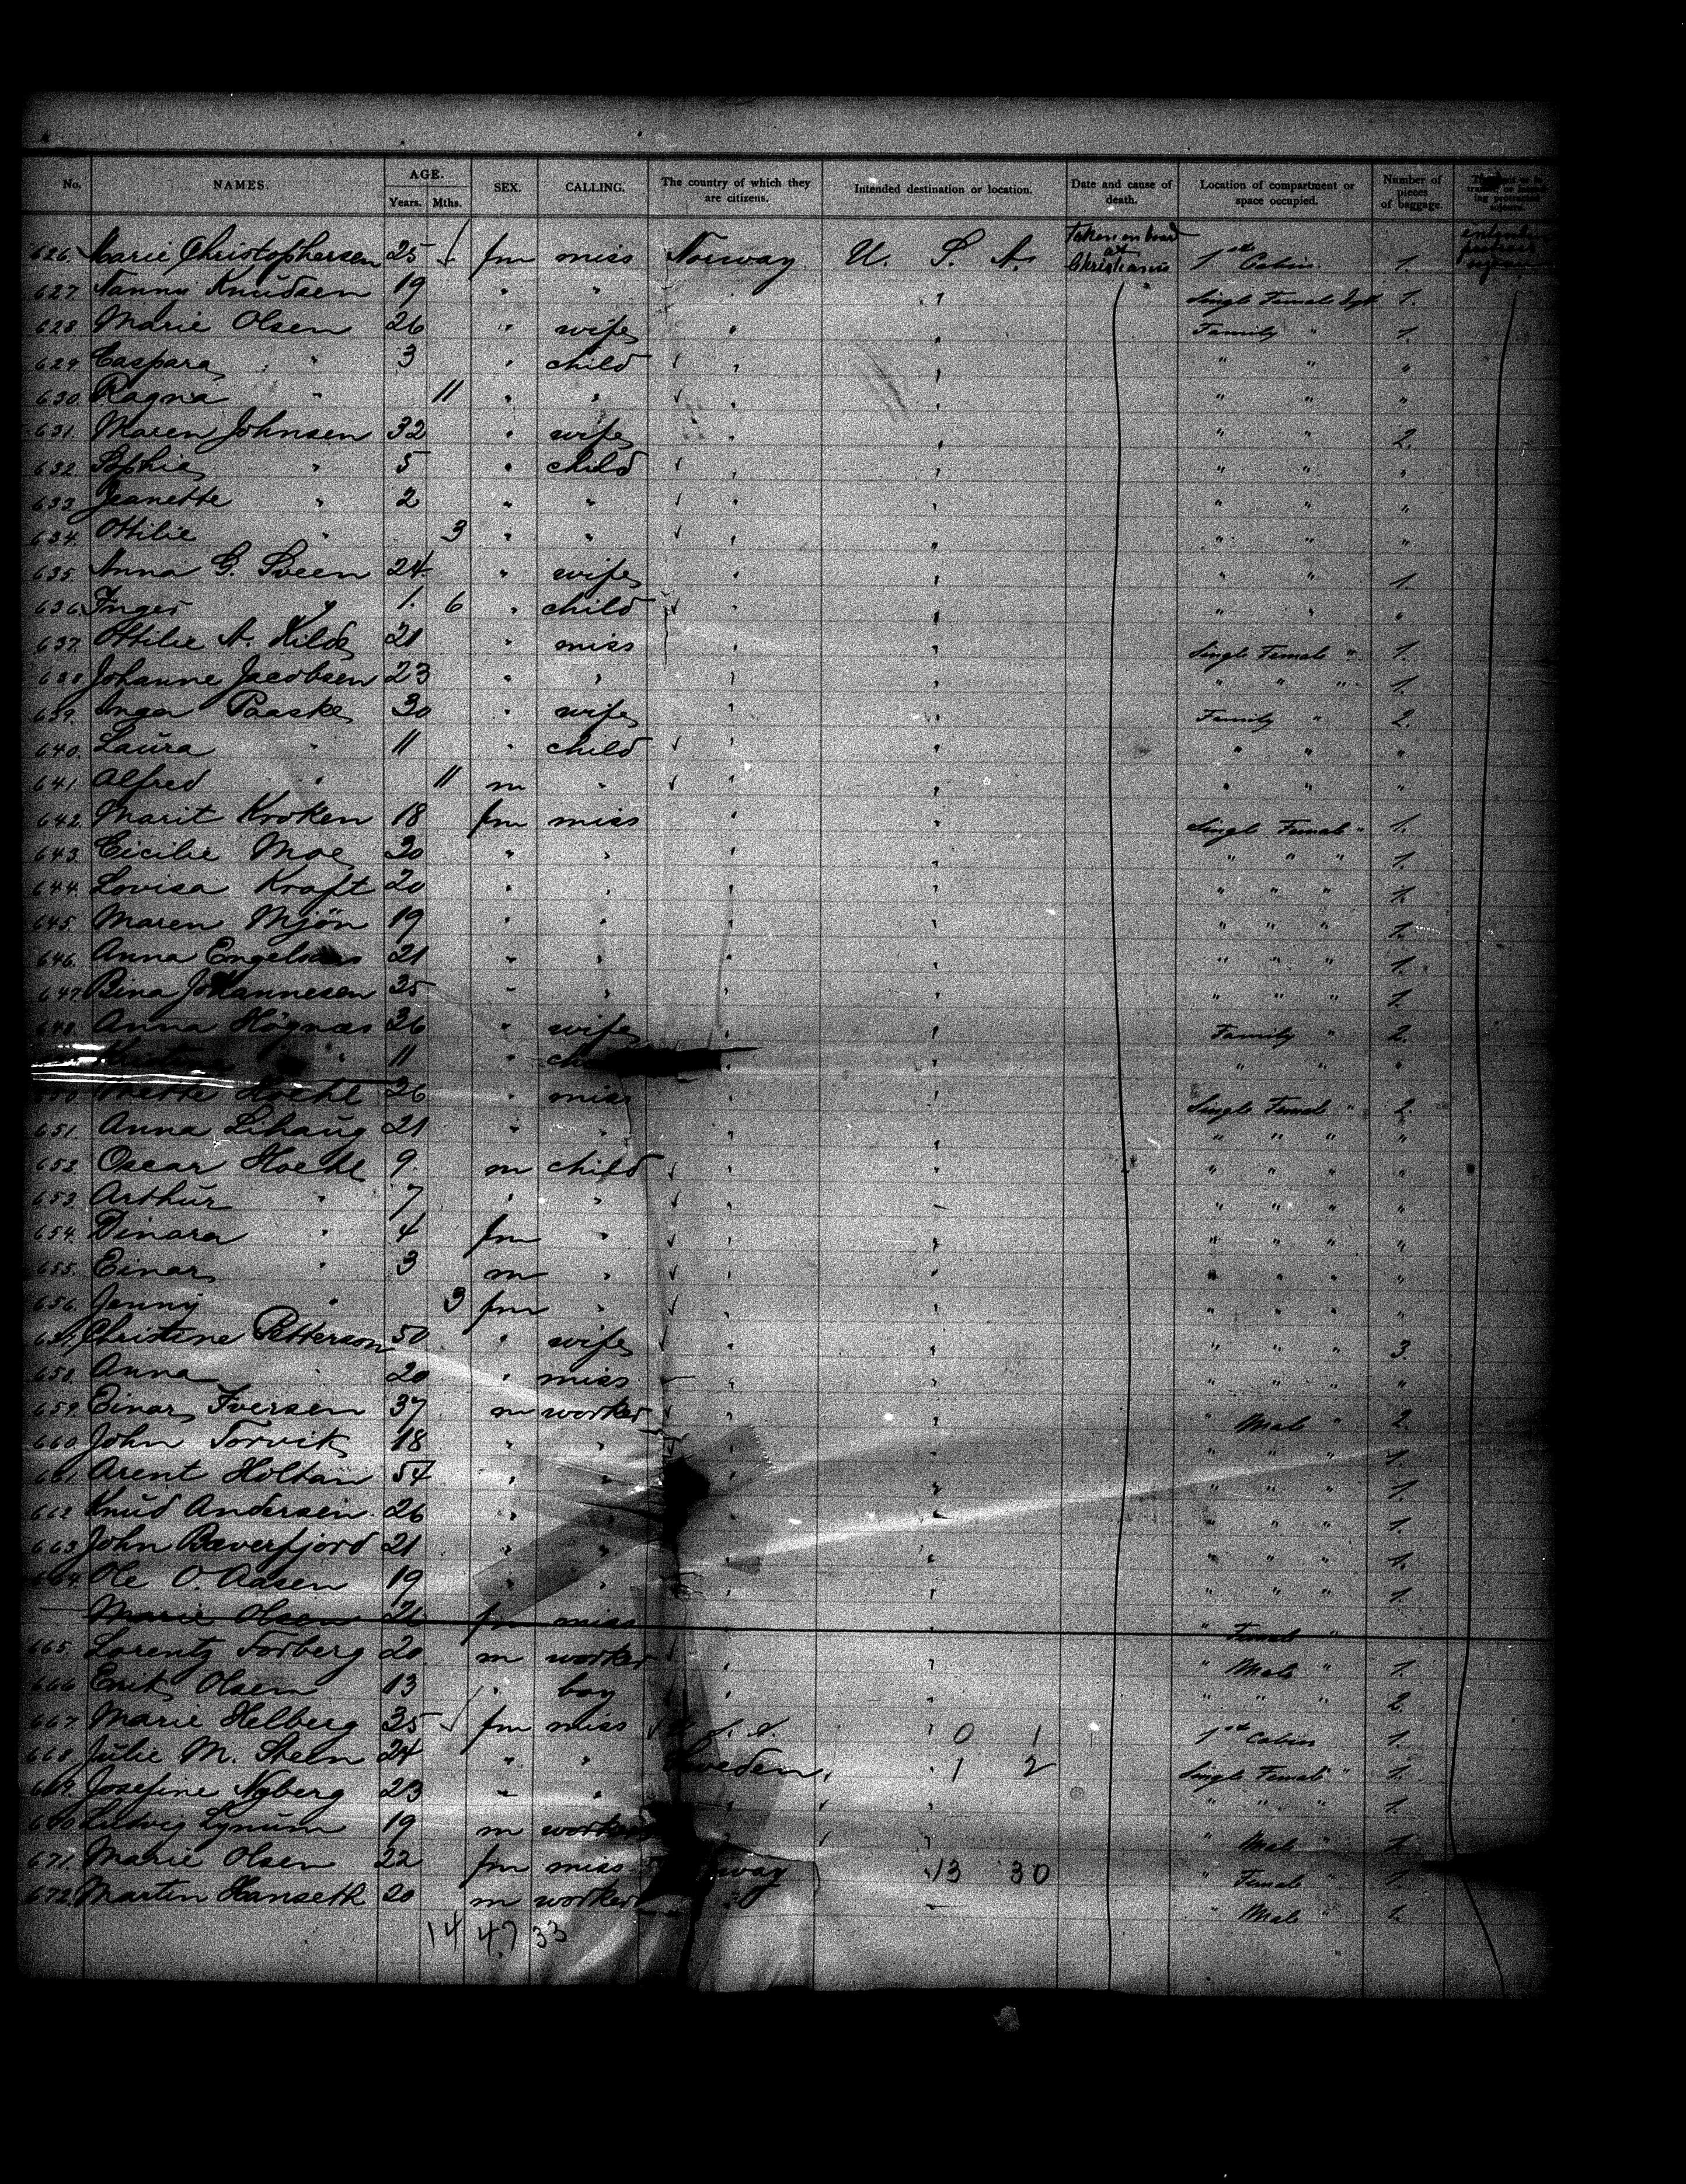 No. NAMES. AGE. Years. Mths. SEX. CALLING. The country of which they are citizens. Intended destination or location. Date and cause of death. Location of compartment or space occupied. Number of pieces of baggage.
626. Marie Christophersen 25 fm miss Norway U. S. A. Taken on board at Christiania 1st Cabin 1.
627. Nanny Knudsen 19 " " " " Single Female Dpt 1.
628. Marie Olsen 26 " wife " " Family " 1.
629. Caspara " 3 " child " " " " "
630. Ragna " 11 " " " " " " "
631. Maren Johnsen 32 " wife " " " " 2.
632. Sophie " 5 " child " " " " "
633. Jeanette " 2 " " " " " " "
634. Ottilie " 3 " " " " " " "
635. Anna G. Sveen 24 " wife " " " " 1.
636. Inger " 1. 6 " child " " " " "
637. Ottilie A. Hilde 21 " miss " " Single Female " 1.
638 Johanne Jacobsen 23 " " " " " " " 1.
639. Inga Paaske 30 " wife " " Family " 2.
640. Laura " 11 " child " " " " "
641. Alfred " 11 m " " " " " "
642. Marit Kroken 18 fm miss " " Single Female " 1.
643. Cicilie Moe 20 " " " " " " " 1.
644. Lovisa Kraft 20 " " " " " " " 1.
645. Maren Mjön 19 " " " " " " " 1.
646. Anna 21 " " " " " " " 1.
647. Bina Johannesen 35 " " " " " " " 1.
648. Anna Högnæs 36 " wife " " Family " 2.
" 11 " " " " " "
Hoehl 26 " miss " " Single Female " 2.
651. Anna Lihaug 21 " " " " " " " "
652. Oscar Hoehl 9. m child " " " " " "
653. Arthur " 7 " " " " " " " "
654. Dinara " 4 fm " " " " " " "
655. Einar " 3 m " " " " " " "
656. Jenny " 3 fm " " " " " " "
657. Christine Petterson 50 " wife " " " " " 3.
658. Anna " 20 " miss " " " " " "
659. Einar Iversen 37 m worker " " " Male " 2.
660. John Torvik 18 " " " " " " " 1.
661. Arent Holtan 54 " " " " " " " 1.
662 Knud Andersen 26 " " " " " " " 1.
663. John Bæverfjord 21 " " " " " " " 1.
664. Ole O. Aasen 19 " " " " " " " 1.
Marie Olsen 26 fm miss " " " Female "
665. Lorentz Forberg 20. m worker " " " Male " 1.
666 Erik Olsen 13 " boy " " " " " 2.
667. Marie Helberg 35 fm miss " 0 1 1st Cabin 1.
668. Julie M. Steen 24 " " Sweden " 1 2 Single Female " 1.
669. Josefine Nyberg 23 " " " " " " " 1.
Ludvig Lynum 19 m worker " " Male " 1.
671. Marie Olsen 22 fm miss Norway 13 30 " Female " 1.
672. Martin Hanseth 20 m worker " " " Male " 1.
14 47 33